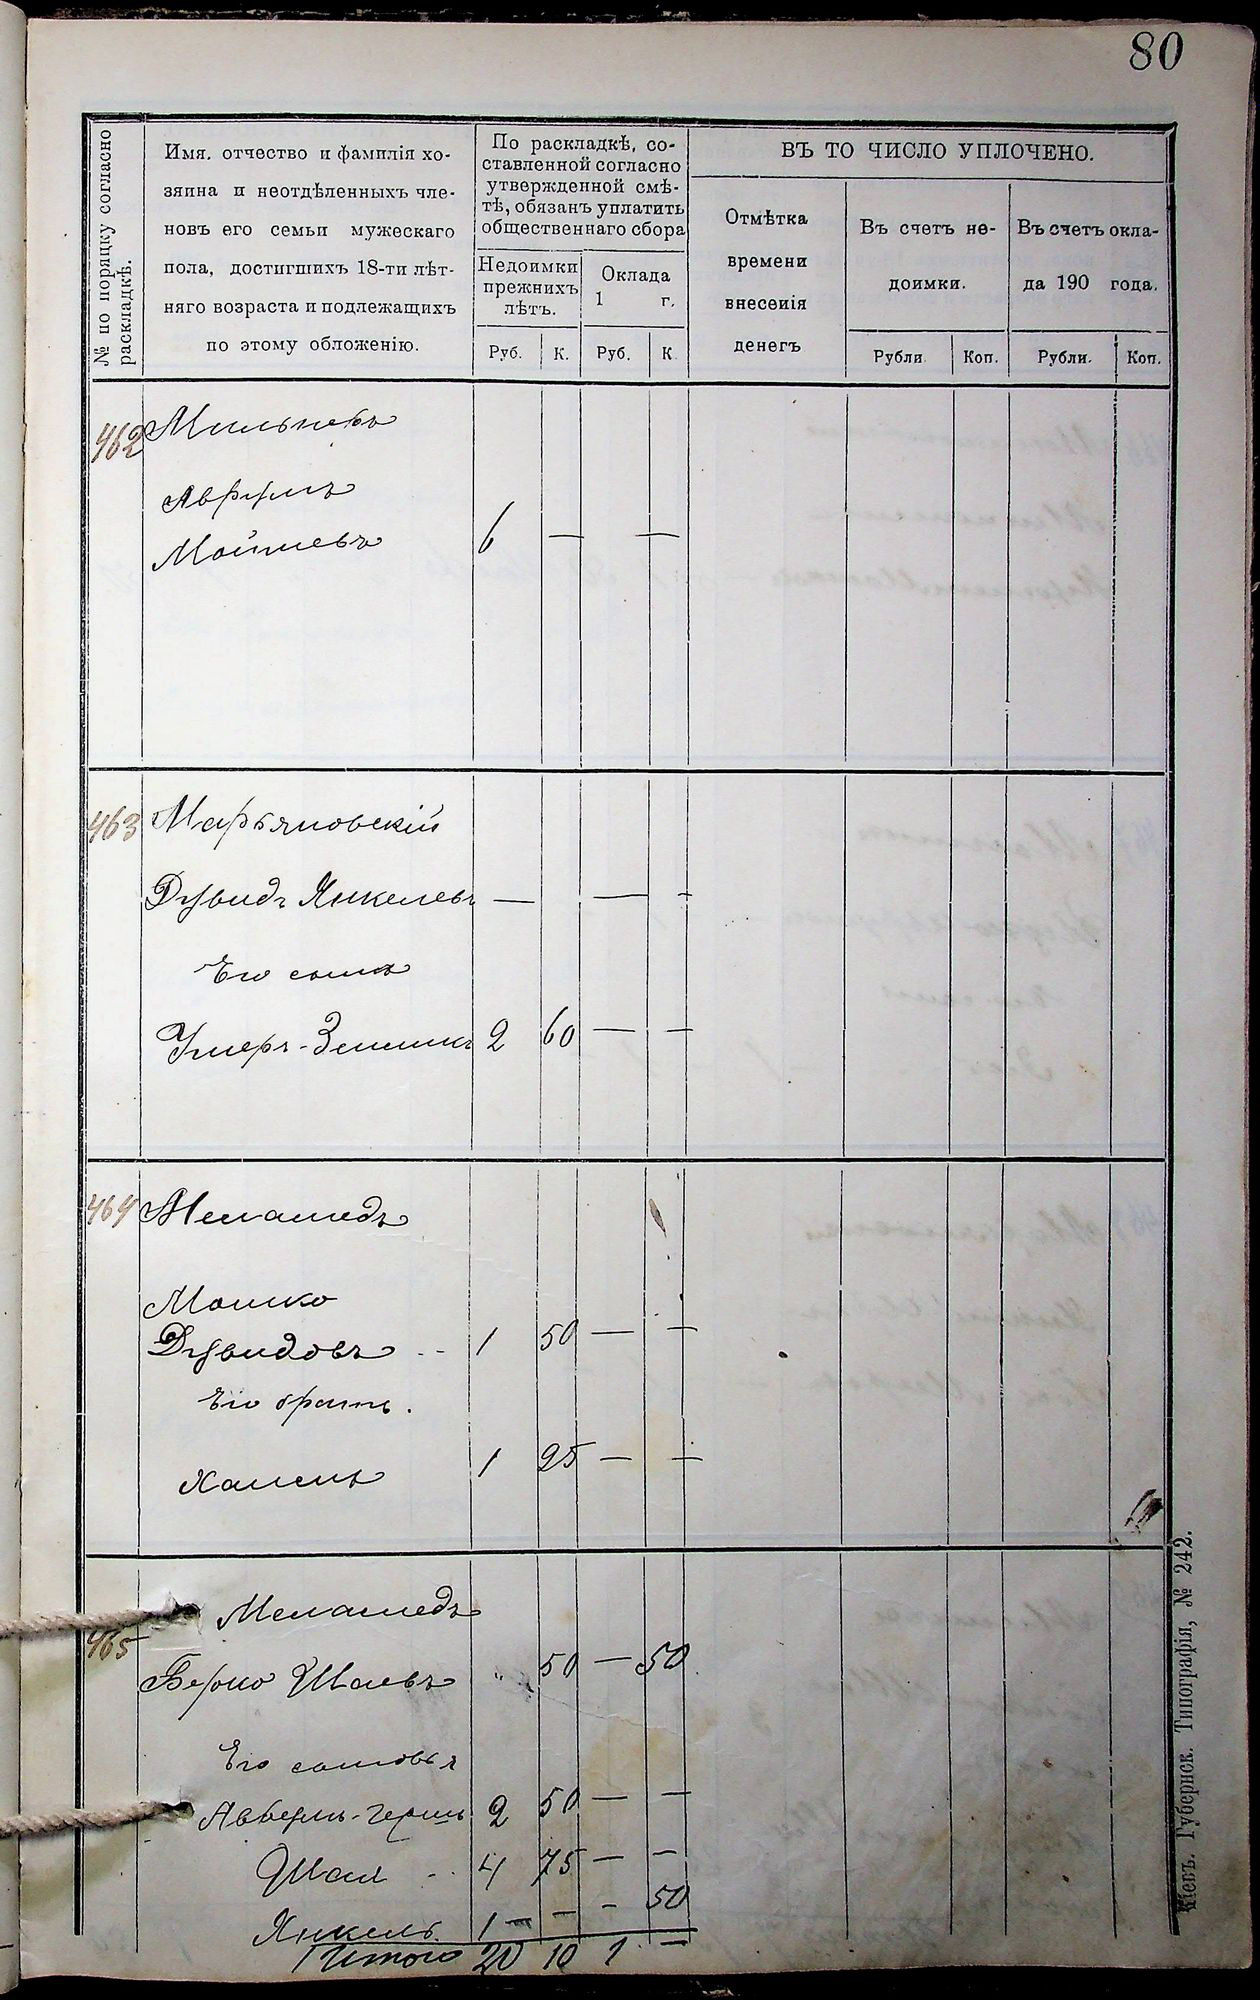 80
№ по порядку согласно раскладкѣ.
Имя, отчество и фамилія хо-
зяина и неотдѣленныхъ чле-
новъ его семьи мужескаго
пола, достигшихъ 18-ти лѣт-
няго возраста и подлежащихъ
по этому обложенію.
По раскладкѣ, со-
ставленной согласно
утвержденной смѣ-
тѣ, обязанъ уплатить
общественнаго сбора
Недоимки
прежнихъ
лѣтъ.
Оклада
1 г.
Руб. К. Руб. К
ВЪ ТО ЧИСЛО УПЛОЧЕНО.
Отмѣтка
времени
внесенія
денегъ
Въ счетъ не-
доимки.
Въ счетъ окла-
да 190 года.
Рубли. Коп. Рубли. Коп.
462 Мильневъ
Аврумъ
Мошневъ 6 — —
463 Марьяновскій
Дувидъ Янкелевъ — — -
Его сынъ
Умеръ-Зельманъ 2 60 — —
464 Меламедъ
Мошко
Дувидовъ 1 50 — —
Его братъ.
Хаимъ 1 25 — —
465 Меламедъ
Берко Шаевъ " 50 — 50
Его сыновья
Аврумъ-Гершъ 2 50 — —
Шая 4 75 — —
Янкель 1 — — - 50
Итого 20 10 1 —
Кіевъ. Губернск. Типографія, № 242.